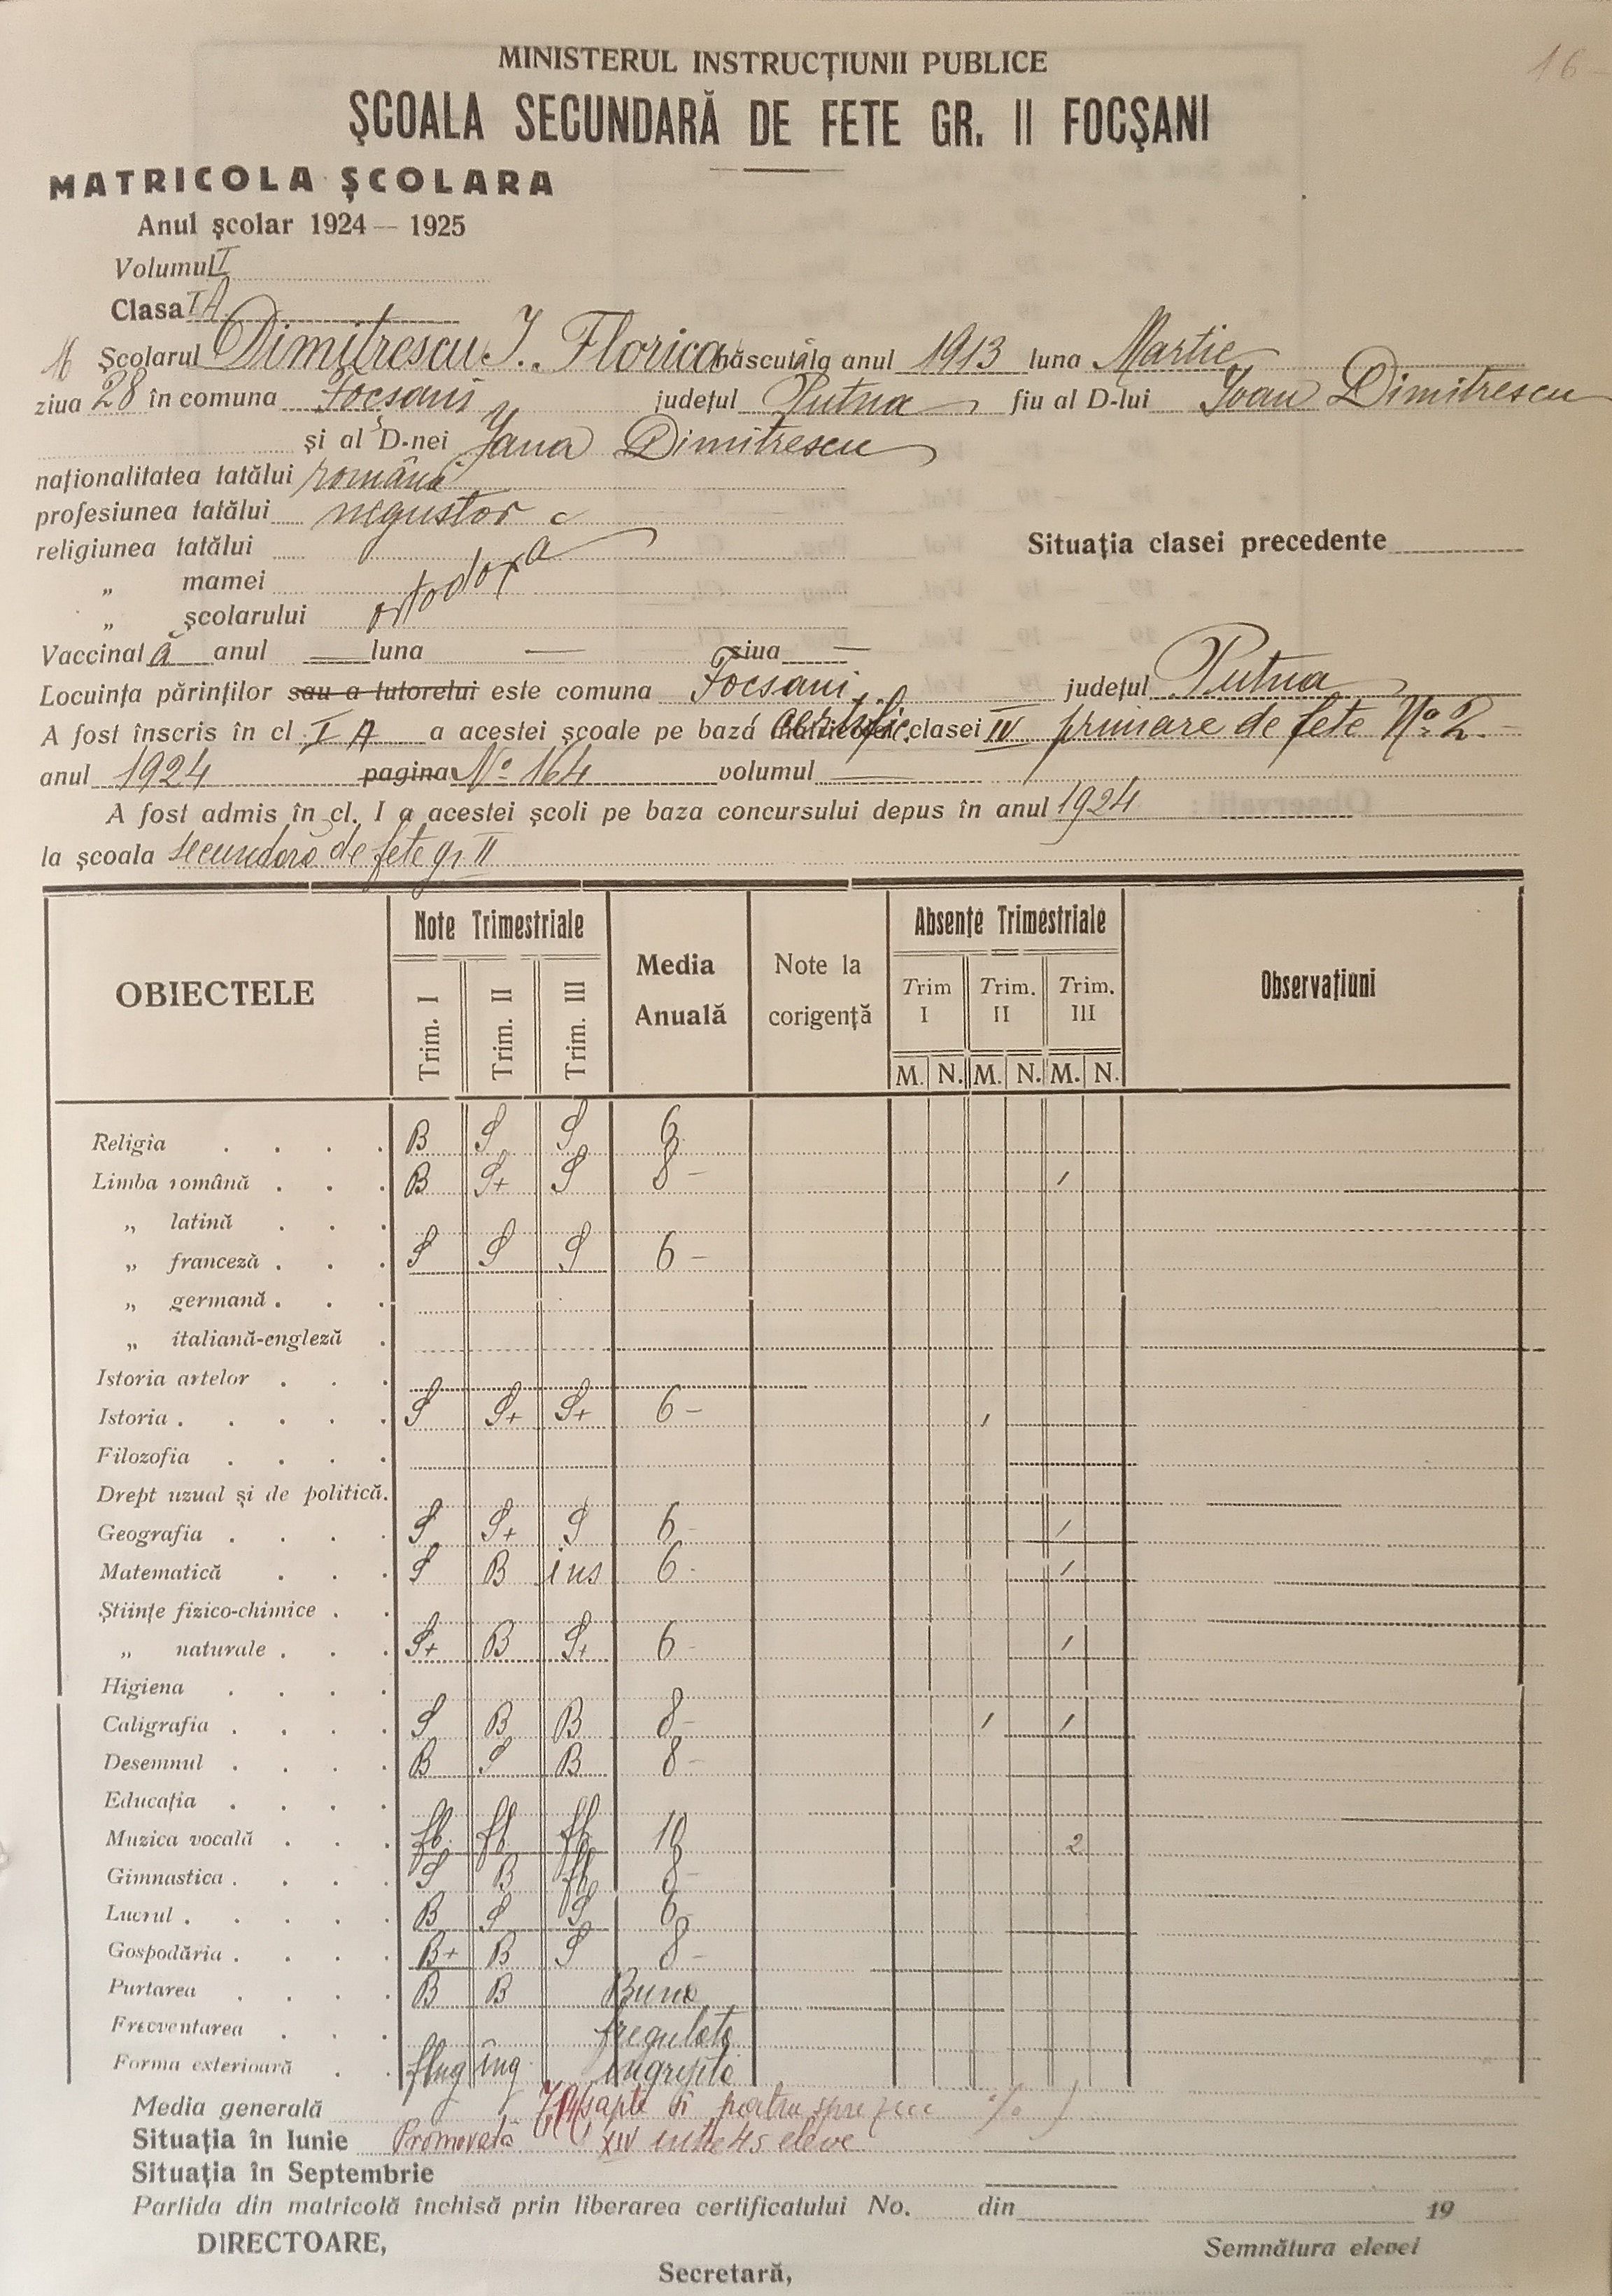 16
MINISTERUL INSTRUCȚIUNII PUBLICE
ȘCOALA SECUNDARĂ DE FETE GR. II FOCȘANI
MATRICOLA ȘCOLARA
Anul școlar 1924 — 1925
Volumul I
Clasa I A
Școlarul Dimitrescu I. Florica născut ă la anul 1913 luna Martie
ziua 28 în comuna Focșani județul Putna fiu al D-lui Ioan Dimitrescu
și al D-nei Iana Dimitrescu
naționalitatea tatălui română
profesiunea tatălui negustor
religiunea tatălui
„ mamei ortodoxa
„ școlarului
Situația clasei precedente
Vaccinat ă anul — luna — ziua —
Locuința părinților sau a tutorelui este comuna Focsani județul Putna
A fost înscris în cl I A a acestei școale pe bază certific. clasei IV primare de fete No 2.
anul 1924 pagina No 164 volumul —
A fost admis în cl. I a acestei școli pe baza concursului depus în anul 1924
la școala secundară de fete gr. II
OBIECTELE Note Trimestriale Media Anuală Note la corigență Absențe Trimestriale Observațiuni
Trim. I Trim. II Trim. III Trim I Trim. II Trim. III
M. N. M. N. M. N.
Religia B S S 6
Limba română B S+ S 8 - /
„ latină
„ franceză S S S 6 -
„ germană
„ italiană-engleză
Istoria artelor
Istoria S S+ S+ 6 - /
Filozofia
Drept uzual și de politică.
Geografia S S+ S 6 - /
Matematică S B ins 6 - /
Științe fizico-chimice
„ naturale S+ B S+ 6 - /
Higiena
Caligrafia S B B 8 - / /
Desemnul B S B 8 -
Educația
Muzica vocală fb. fb fb 10 2
Gimnastica S B fb 8 -
Lucrul B S S 6 -
Gospodăria B+ B S 8 -
Purtarea B B Bună
Frecventarea regulată
Forma exterioară îng îngrijită
Media generală 7,14 șapte si patru spre zece %
Situația în Iunie Promovată XIV între 45 eleve
Situația în Septembrie
Partida din matricolă închisă prin liberarea certificatului No. din 19
DIRECTOARE,
Semnătura elevei
Secretară,